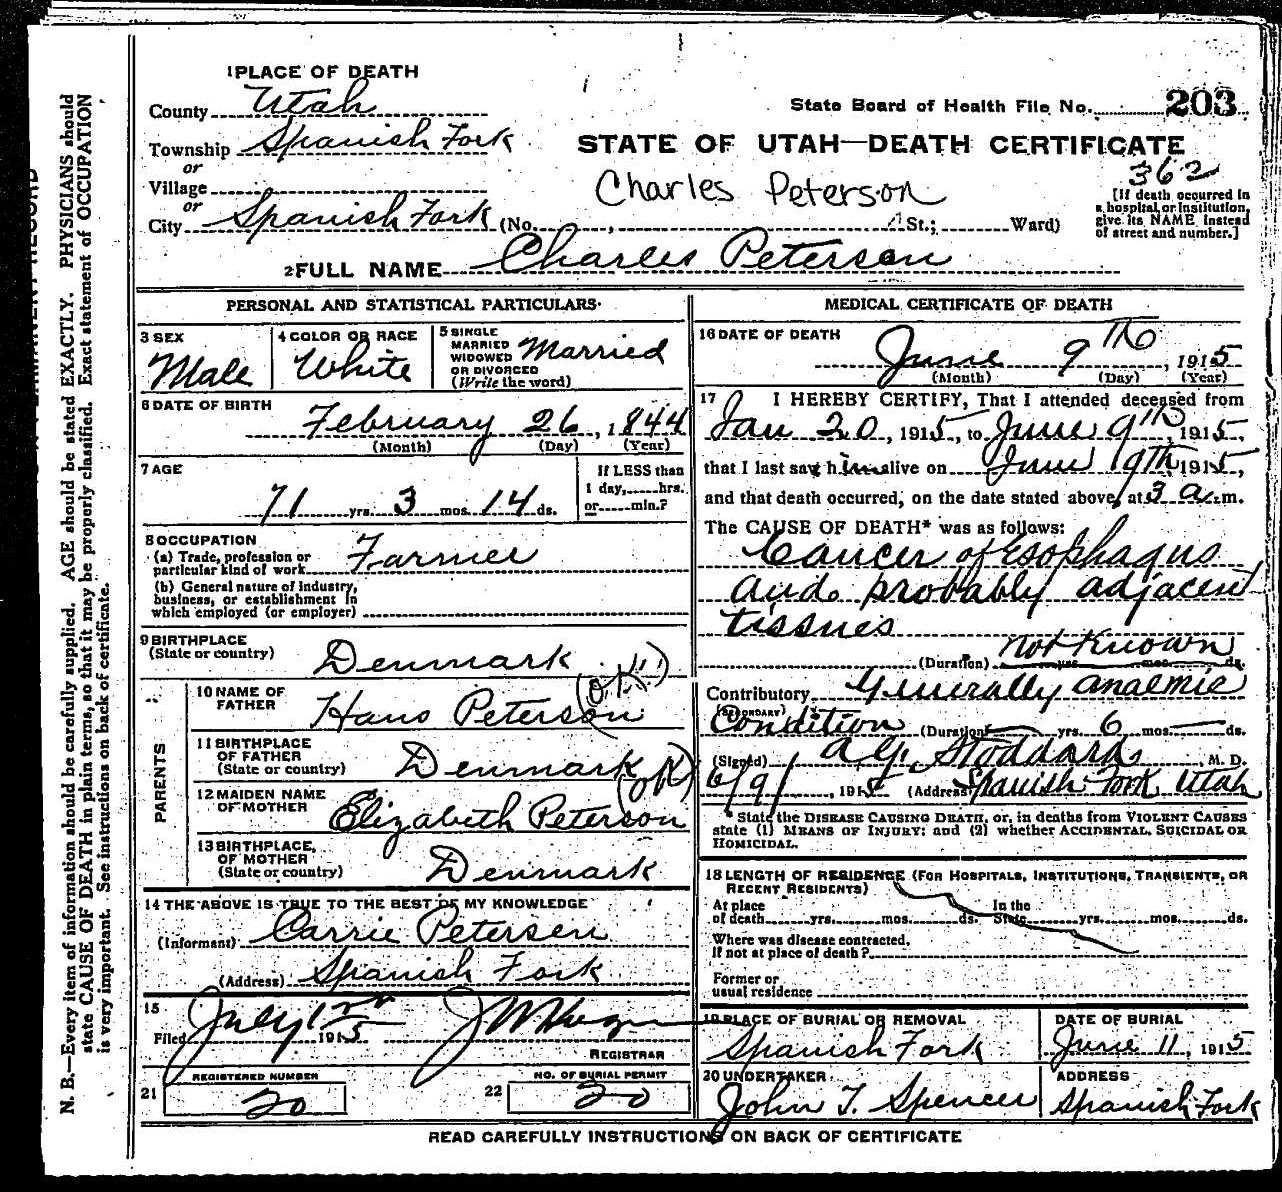 1 PLACE OF DEATH
County Utah
State Board of Health File No. 203
Township Spanish Fork
STATE OF UTAH—DEATH CERTIFICATE
or
Village
362
Charles Peterson
[If death occurred in a hospital or institution, give its NAME instead of street and number.]
or
City Spanish Fork (No. , St.; Ward)
2 FULL NAME Charles Peterson
PERSONAL AND STATISTICAL PARTICULARS
3 SEX
Male
4 COLOR OR RACE
White
5 SINGLE
MARRIED
WIDOWED
OR DIVORCED
(Write the word)
Married
6 DATE OF BIRTH
February 26, 1844
(Month) (Day) (Year)
7 AGE
71 yrs. 3 mos. 14 ds.
If LESS than
1 day, hrs.
or min.?
8 OCCUPATION
(a) Trade, profession or
particular kind of work Farmer
(b) General nature of industry,
business, or establishment in
which employed (or employer)
9 BIRTHPLACE
(State or country) Denmark
PARENTS
10 NAME OF
FATHER Hans Peterson (O.K.)
11 BIRTHPLACE
OF FATHER
(State or country) Denmark
12 MAIDEN NAME
OF MOTHER Elizabeth Peterson (OK)
13 BIRTHPLACE,
OF MOTHER
(State or country) Denmark
14 THE ABOVE IS TRUE TO THE BEST OF MY KNOWLEDGE
(Informant) Carrie Petersen
(Address) Spanish Fork
15
Filed July 1st 1915
REGISTRAR
21 REGISTERED NUMBER 20
22 NO. OF BURIAL PERMIT 20
MEDICAL CERTIFICATE OF DEATH
16 DATE OF DEATH
June 9th, 1915
(Month) (Day) (Year)
17 I HEREBY CERTIFY, That I attended deceased from
Jan 20, 1915, to June 9th, 1915,
that I last saw him alive on June 9th, 1915,
and that death occurred, on the date stated above, at 3 a.m.
The CAUSE OF DEATH* was as follows:
Cancer of Esophagus
and probably adjacent
tissues
(Duration) not known yrs. mos. ds.
Contributory Generally anaemic
(SECONDARY)
Condition (Duration) yrs. 6 mos. ds.
(Signed) A. G. Stoddard, M. D.
6/9/, 1915 (Address) Spanish Fork Utah
* State the DISEASE CAUSING DEATH, or, in deaths from VIOLENT CAUSES
state (1) MEANS OF INJURY; and (2) whether ACCIDENTAL, SUICIDAL OR
HOMICIDAL.
18 LENGTH OF RESIDENCE (FOR HOSPITALS, INSTITUTIONS, TRANSIENTS, OR
RECENT RESIDENTS)
At place
of death yrs. mos. ds.
In the
State yrs. mos. ds.
Where was disease contracted,
If not at place of death?
Former or
usual residence
19 PLACE OF BURIAL OR REMOVAL
Spanish Fork
DATE OF BURIAL
June 11, 1915
20 UNDERTAKER
John T. Spencer
ADDRESS
Spanish Fork
READ CAREFULLY INSTRUCTIONS ON BACK OF CERTIFICATE
N. B.—Every item of information should be carefully supplied. AGE should be stated EXACTLY. PHYSICIANS should
state CAUSE OF DEATH in plain terms, so that it may be properly classified. Exact statement of OCCUPATION
is very important. See instructions on back of certificate.